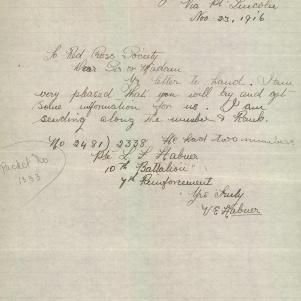 Via Pt Lincoln
Nov. 23, 1916
To Red Cross Society
Dear Sir or Madam
Yr letter to hand. I am
very pleased that you will try and get
some information for us. I am
sending along the number & Rank.
No 2481) 2338. He had two numbers
Pte L L Habner
10th Battalion
7th Reinforcement
Yrs Truly
V E Habner
Packet No
1333